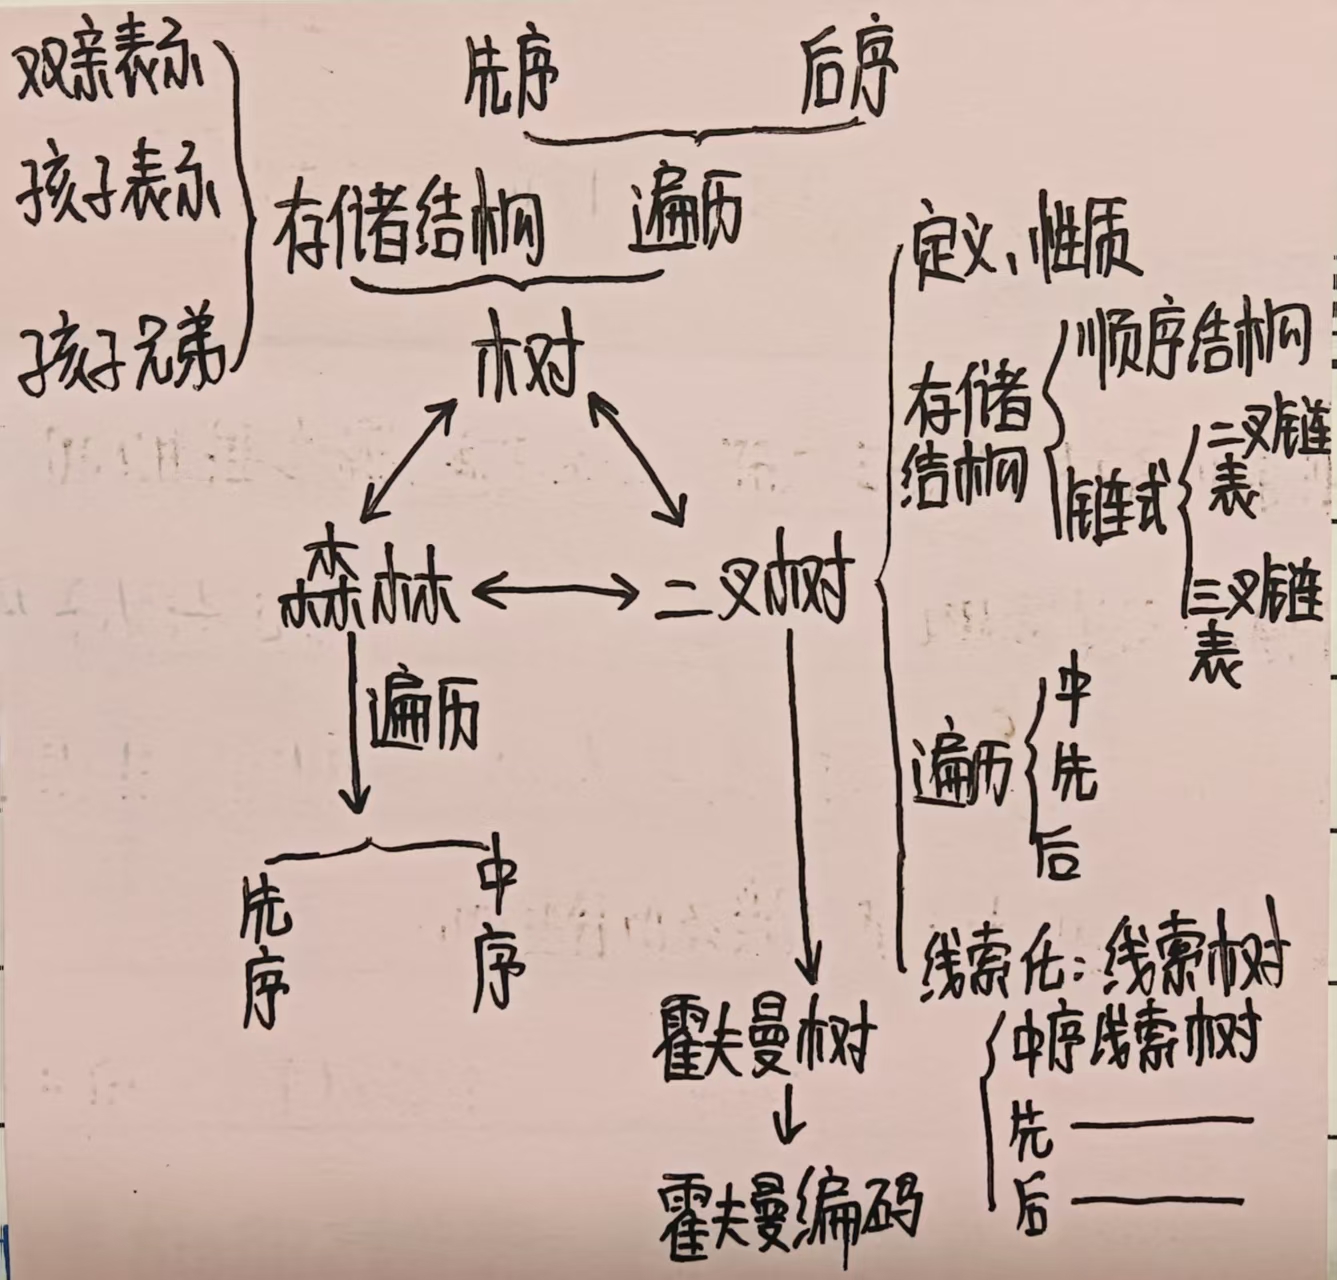 双亲表示
孩子表示
孩子兄弟
先序
后序
存储结构
遍历
树
森林
二叉树
遍历
先序
中序
定义、性质
存储
结构
顺序结构
链式
二叉链
表
三叉链
表
遍历
中
先
后
线索化:线索树
中序线索树
先
后
霍夫曼树
霍夫曼编码